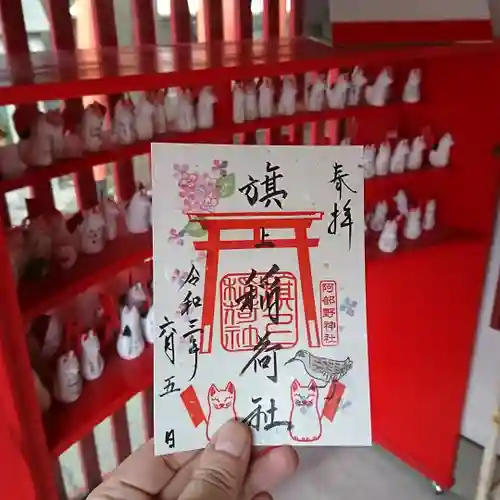 奉拝
旗上稲荷社
阿部野神社
令和三年
六月五日